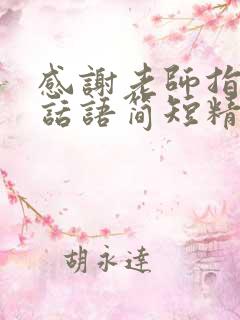 感謝老師指
話語簡短精
胡永達